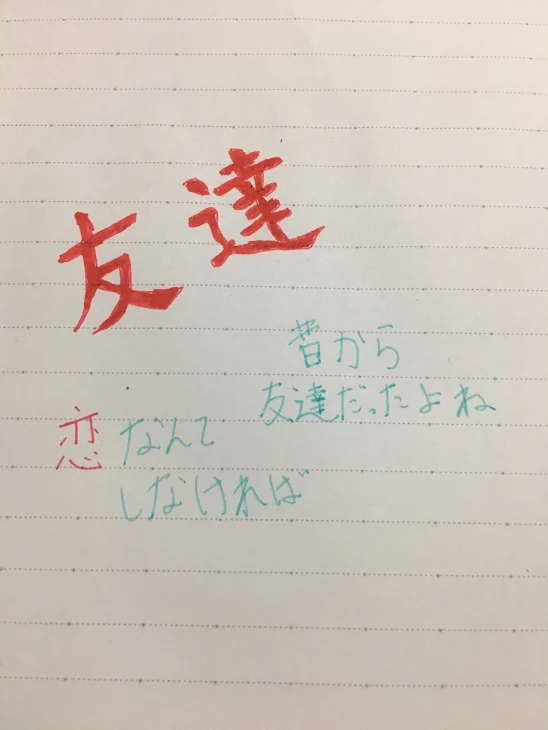 友達
昔から
友達だったよね
恋なんて
しなければ